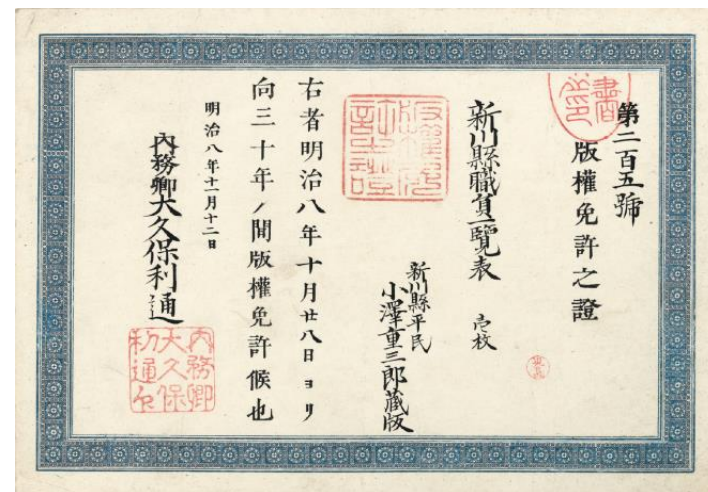 第二百五號
版權免許之證
新川縣職員一覽表 壱枚
新川縣平民
小澤重三郎藏版
版權免許之證
右者明治八年十月廿八日ヨリ
向三十年ノ間版權免許候也
明治八年十一月十二日
內務卿大久保利通
內務卿
大久保
利通印